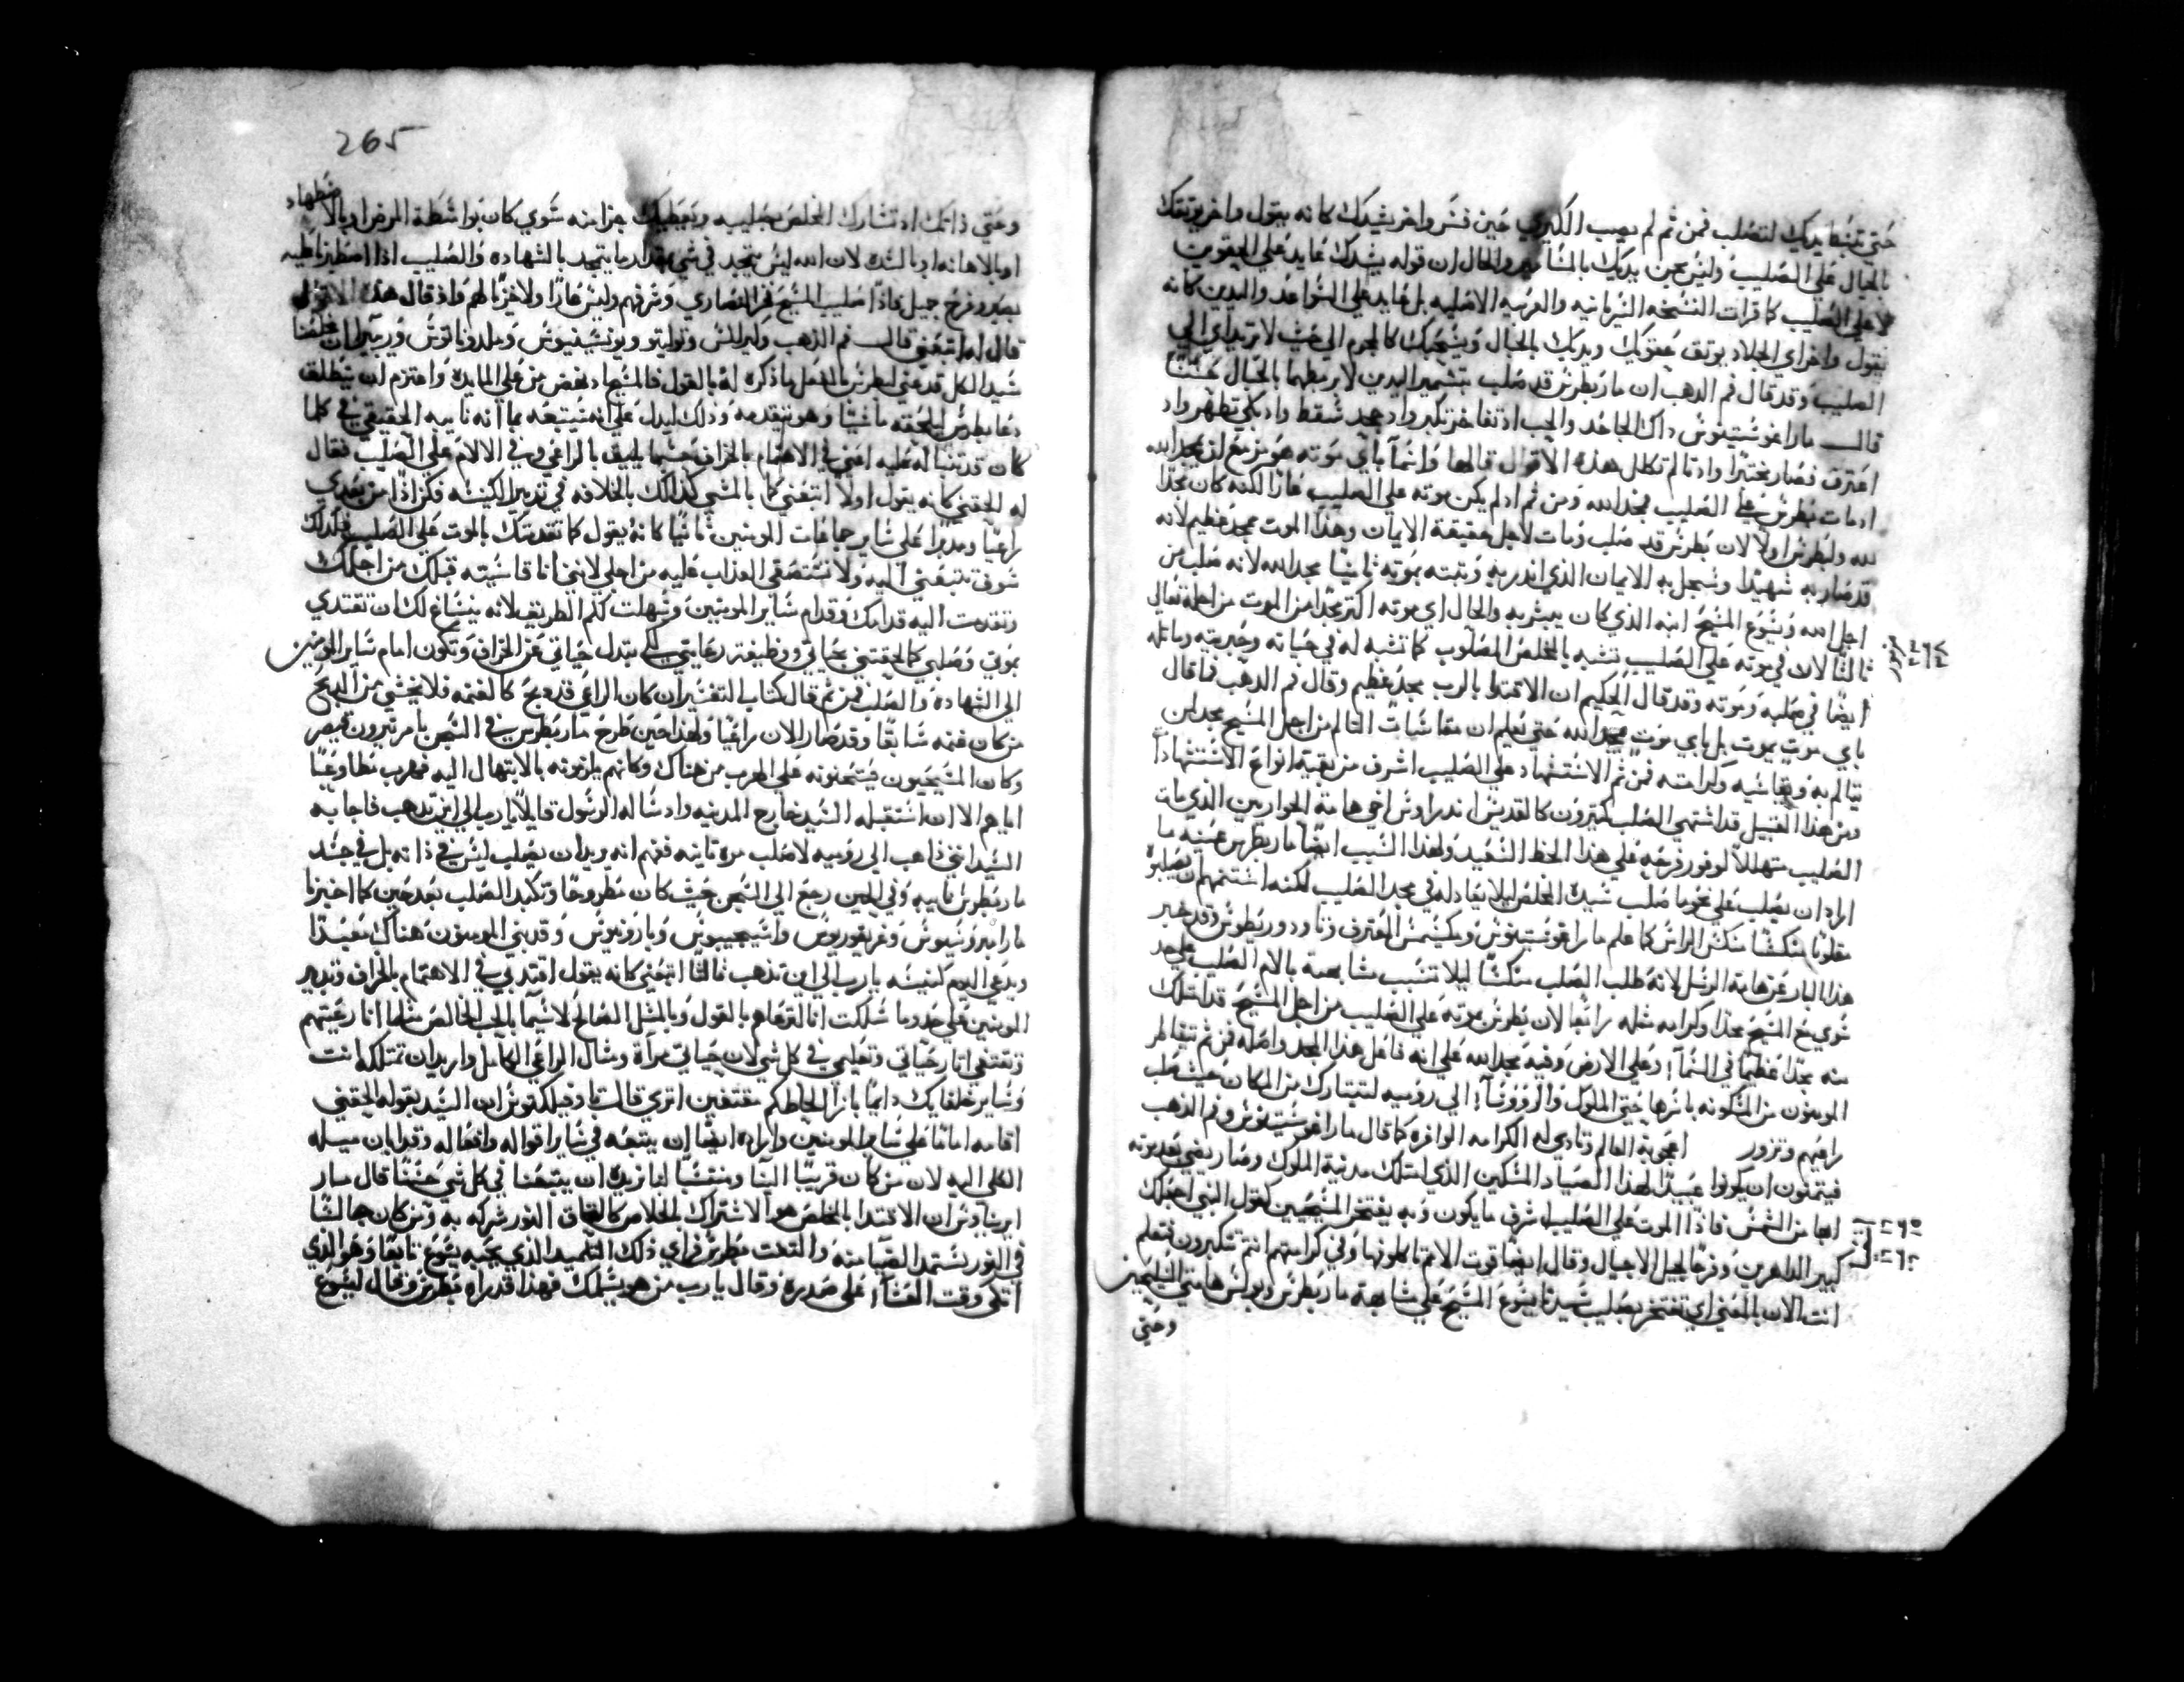 حتى تبسط يديك لتصلب فمن ثم لم يصب الكبري حين فسر واخر يشدك كانه يقول واخر يوثقك
بالحبال على الصليب وليس عن يديك بالمسامير والحال ان قوله يشدك عايد على الحقوين
لا على الصليب كما قرات النسخه السريانيه والعربيه الاصليه بل عايد على السواعد واليدين كانه
يقول واخر اي الجلاد يوثق حقويك ويديك بالحبال ويسحبك كالمجرم الى حيث لا تريد اي الى
الصليب وقد قال فم الذهب ان مار بطرس قد صلب بتسمير اليدين لا بربطهما بالحبال حسنا
قال مار اغوستينوس داك الجاحد والمحب اد تفاخر تكبر واد جحد سقط واد بكى تطهر واد
اعترف فصار مختبرا واد تالم تكلل هذه الاقوال قالها وانما باي موته هو مزمع ان يمجد الله
اد مات بطرس على الصليب مجد الله ومن ثم اد لم يكن موته على الصليب عارا لكنه كان مجدا
لله ولبطرس اولا لان بطرس قد صلب ومات لاجل حقيقة الايمان وهذا الموت مجد عظيم لانه
قد صار به شهيدا وسجل به الايمان الذي اندر به وثبته بموته ثانيا مجد الله لانه صلب من
اجل الله ويسوع المسيح ابنه الذي كان يبشر به والحال اي موته اكثر مجدا من الموت من اجله تعالى
ثالثا لان في موته على الصليب تشبه بالمخلص المصلوب كما تشبه له في حياته وحبريته وماثله
ايضا في صلبه وموته وقد قال الحكيم ان الاقتدا بالرب مجد عظيم وقال فم الذهب فما قال
باي موت يموت بل باي موت يمجد الله حتى تعلم ان مقاسات التالم من اجل المسيح مجد لمن
يتالم به ويقاسيه وكرامته فمن ثم الاستشهاد على الصليب اشرف من بقية انواع الاستشهاد
ومن هذا القبيل قد اشتهى الصلب كثيرون كالقديس اندراوس اخي هامة الحواريين الذي مات
الصليب متهللا لوفور فرحه على هذا الحظ السعيد ولهذا السبب ايضا مار بطرس عينه ما
اراد ان يصلب على نحو ما صلب سيده المخلص ليلا يعادله في مجد الصلب لكنه استفهم ان يصلبوه
مقلوبا منكسا منكس الراس كما علم مار اغوستينوس ومكسيمس المعترف وتاودوريطوس وقد خبر
هذا البار عن هامة الرسل لانه طلب الصلب منكسا ليلا تنسب مشابهته بالام الصليب على حد
سوي مع المسيح مجدا وكرامه مثله رابعا لان بطرس بموته على الصليب من اجل المسيح قد امتلك
منه مجدا عظيما في السما وعلى الارض وفيه مجد الله على انه فاعل هذا المجد واصله فمن ثم تتقاطر
المومنون من المسكونه باسرها حتى الملوك والروسا الى روميه لتتبارك من المكان حيث صلب
راعيهم وتزور اعجوبة العالم وتادي له الكرامه الوافره كما قال مار اغوستينوس وفم الذهب
فيتمنون ان يكونوا عبيدا لهذا الصياد المسكين الذي امتلك مدينة الملوك وصار يضي بعد موته
ابها من الشمس فاذا الموت على الصليب اشرف ما يكون وبه يفتخر المسيحيين كقول النبي اجعلك
كبير الداهرين وفرحا لجيل الاجيال وقال ايضا قوت الامم تاكلونها وفي كرامتهم انتم تتكبرون فتعلم
انت الان بالمعنى اي تفتخر بصليب سيدنا يسوع المسيح على مشابهة مار بطرس وبولس هامتي التلميذين
وحتى
265
وحتى ذاتك اد تشارك المخلص بصليبه ويعطيك جزا منه سوي كان بواسطة المرض او بالاضطهاد
او بالاهانه او بالشده لان الله ليس يتمجد في شي بمقدار ما يتمجد بالشهاده والصليب اذا اصطبرنا عليه
بصبر وفرح جميل فاذا صليب المسيح فخر النصاري وشرفهم وليس عارا ولا خزيا لهم واذ قال هذه الاقوال
قال له اتبعني قال فم الذهب وكيرلس وتوليتو ويوتسينيوس وملدوناتوس وريبيرا ان مخلصنا
سيد الكل قد عنى لبطرس بالفعل ما ذكره له بالقول فالمسيح اد نهض من على المايده واعتزم ان ينطلق
دعا بطرس ليلحقه ماشيا وهو يتقدمه وذلك ليدل على انه مستتبعه بما انه نايبه الحقيقي في كلما
كان قد تنبا له عليه اعني في الاهتمام بالخراف حسبما يليق بالراعي وفي الالام على الصليب فقال
له الحقني كانه يقول اولا اتبعني كما بالمشي كذالك بالخلافه في تدبير الكنيسه فكن اذا من بعدي
راعيا ومدبرا على ساير جماعات المومنين ثانيا كانه يقول كما تقدمتك بالموت على الصليب فكذلك
سوف تتبعني اليه ولا تستصقي العذاب عليه من اجلي لانني انا قاسيته قبلك من اجلك
وتقدمت اليه قدامك وقدام ساير المومنين وسهلت لكم الطريق لانه ينساغ لك ان تقتدي
بموتي وصلبي كما لحقتني بحياتي ووظيفة رعايتي لكي تبدل حياتي عن الخراف وتكون امام ساير المومنين
الى الشهاده والصلب فمن ثم قال كتاب التفسير ان كان الراعي قد دبح كالغنمه فلا يخشى من الدبح
من كان غنمه سابقا وقد صار الان راعيا ولهذا حين طرح مار بطرس في السجن بامر نيرون قيصر
وكان المسيحيون يمتحنونه على الهرب من هناك وكانهم يلزمونه بالابتهال اليه فهرب مطاوعا
اياهم الا ان استقبله السيد خارج المدينه واد ساله الرسول قايلا يارب الى اين تدهب فاجابه
السيد انني ذاهب الى روميه لاصلب مره ثانيه ففهم انه يريد ان يصلب ليس في ذاته بل في جسد
مار بطرس نايبه وفي الحين رجع الى السجن حيث كان مطروحا وتكبد الصلب بعد حين كما اخبرنا
مار امبروسيوس وغريغوريوس واسيجيبوس وبارونيوس وقد بنى المومنون هناك معبدا
ويدعى اليوم كنيسه يارب الى اين تذهب ثالثا اتبعني كانه يقول اقتد بي في الاهتمام بالخراف وتدبير
المومنين على حد ما سلكت انا لترعاهم بالقول وبالمثل الصالح لاسيما بالحب الخالص مثلما انا رعيتهم
وتقتفي اثار حياتي وتعليمي في كل شي لان حياتي مراة ومثال الراعي الكامل واريد ان تمتلكه انت
وساير خلفايك دايما بازا لحاظكم مقتفين اثري قال تاوفيلكتوس ان السيد بقوله الحقني
اقامه اماما على ساير المومنين واراده ايضا ان يتبعه في ساير اقواله وافعاله وقد ابان ميله
الكلي اليه لان من كان قريبا الينا ومنتسبا لنا نريده ان يتبعنا في كل شي حسنا قال مار
ايريناوس ان الاقتدا بالمخلص هو الاشتراك بالخلاص كالتحاق النور شركه به ومن كان جالسا
في النور يستمد الضيا منه والتفت بطرس فراي ذلك التلميد الذي يحبه يسوع تابعا وهو الذي
اتكى وقت العشا على صدره وقال يارب من هو يسلمك فهذا قد راه بطرس وقال ليسوع